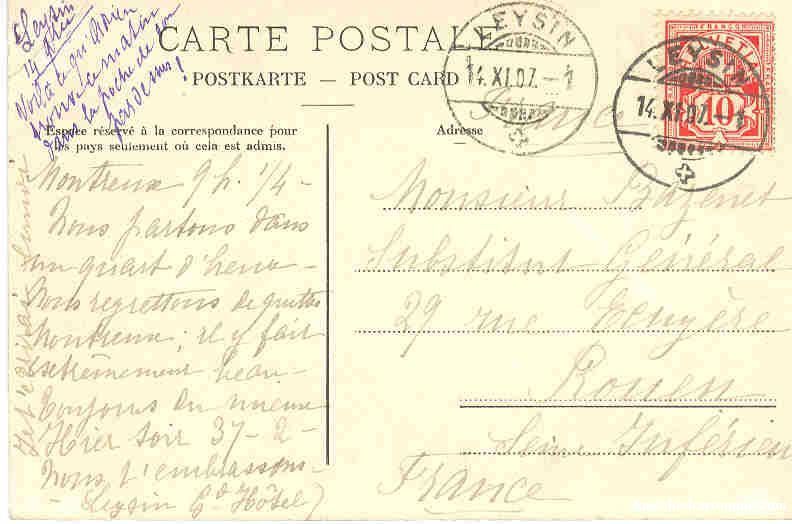 Leysin
14 
Voilà ce qu'Adrien
trouve ce matin
dans la poche de son
pardessus!
CARTE POSTALE
POSTKARTE — POST CARD
Espace réservé à la correspondance pour
les pays seulement où cela est admis.
Adresse
LEYSIN
14.XI.07.-1
LEYSIN
14.XI.07.-1
HELVETIA
FRANCO
10
Montreux 9 h. 1/4 -
Nous partons dans
un quart d'heure -
Nous regrettons de quitter
Montreux; il y fait
extrêmement beau -
Toujours du mieux
Hier soir 37 - 2 -
Nous t'embrassons -
Leysin Gd Hôtel)
France
Monsieur Bazenet
Substitut Général
29 rue Ecuyère
Rouen
Seine Inférieure
France